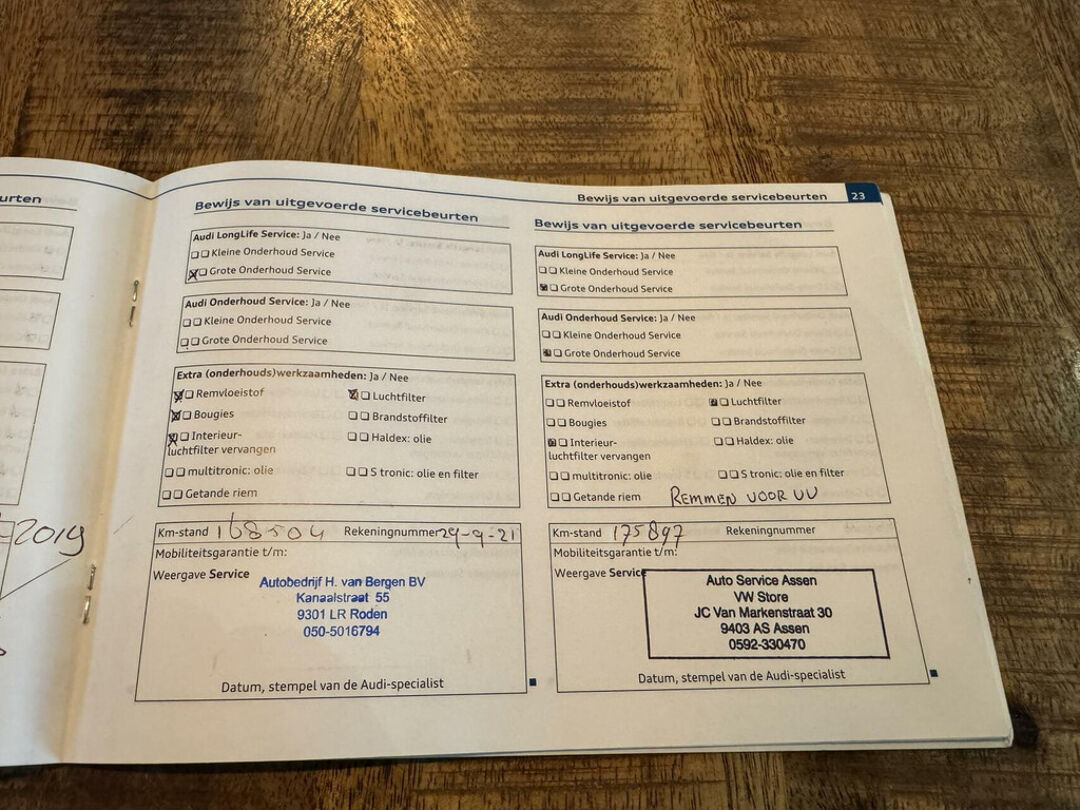 urten
2019
Bewijs van uitgevoerde servicebeurten
Audi LongLife Service: Ja / Nee
Kleine Onderhoud Service
Grote Onderhoud Service
Audi Onderhoud Service: Ja / Nee
Kleine Onderhoud Service
Grote Onderhoud Service
Extra (onderhouds)werkzaamheden: Ja / Nee
Remvloeistof
Luchtfilter
Bougies
Brandstoffilter
Interieur-
luchtfilter vervangen
Haldex: olie
multitronic: olie
S tronic: olie en filter
Getande riem
Km-stand 168504 Rekeningnummer 29-9-21
Mobiliteitsgarantie t/m:
Weergave Service
Autobedrijf H. van Bergen BV
Kanaalstraat 55
9301 LR Roden
050-5016794
Datum, stempel van de Audi-specialist
Bewijs van uitgevoerde servicebeurten 23
Bewijs van uitgevoerde servicebeurten
Audi LongLife Service: Ja / Nee
Kleine Onderhoud Service
Grote Onderhoud Service
Audi Onderhoud Service: Ja / Nee
Kleine Onderhoud Service
Grote Onderhoud Service
Extra (onderhouds)werkzaamheden: Ja / Nee
Remvloeistof
Luchtfilter
Bougies
Brandstoffilter
Interieur-
luchtfilter vervangen
Haldex: olie
multitronic: olie
S tronic: olie en filter
Getande riem
REMMEN VOOR VV
Km-stand 175897 Rekeningnummer
Mobiliteitsgarantie t/m:
Weergave Service
Auto Service Assen
VW Store
JC Van Markenstraat 30
9403 AS Assen
0592-330470
Datum, stempel van de Audi-specialist